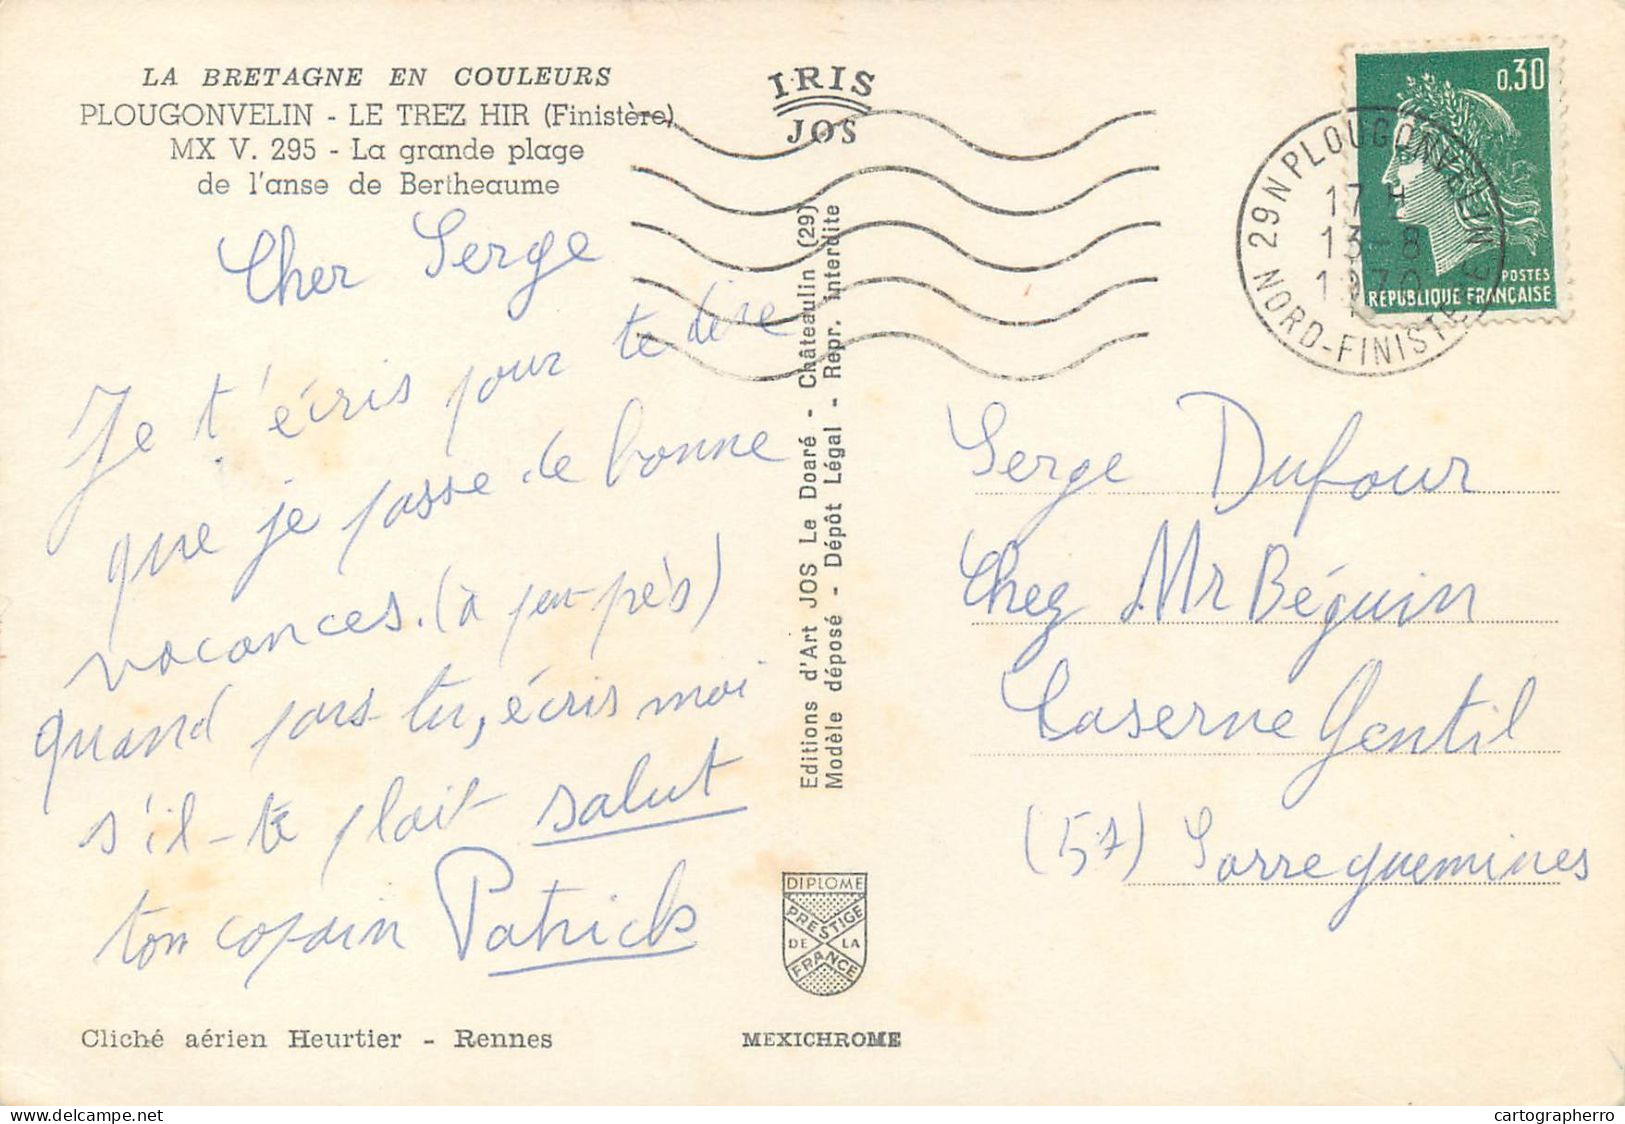 LA BRETAGNE EN COULEURS
PLOUGONVELIN - LE TREZ HIR (Finistère)
MX V. 295 - La grande plage
de l'anse de Bertheaume
IRIS
JOS
0,30
POSTES
REPUBLIQUE FRANÇAISE
29N PLOUGONVELIN
17 H
13-8
1970
NORD-FINISTERE
Cher Serge
Je t'écris pour te dire
que je passe de bonne
vacances. (à peu-près)
quand pars-tu, écris moi
s'il-te plait salut
ton copain Patrick
Editions d'Art JOS Le Doaré - Châteaulin (29)
Modèle déposé - Dépôt Légal - Repr. interdite
Serge Dufour
Chez Mr Béguin
Caserne Gentil
(57) Sarreguemines
DIPLOME
PRESTIGE
DE LA
FRANCE
Cliché aérien Heurtier - Rennes
MEXICHROME
delcampe.net
cartographerro